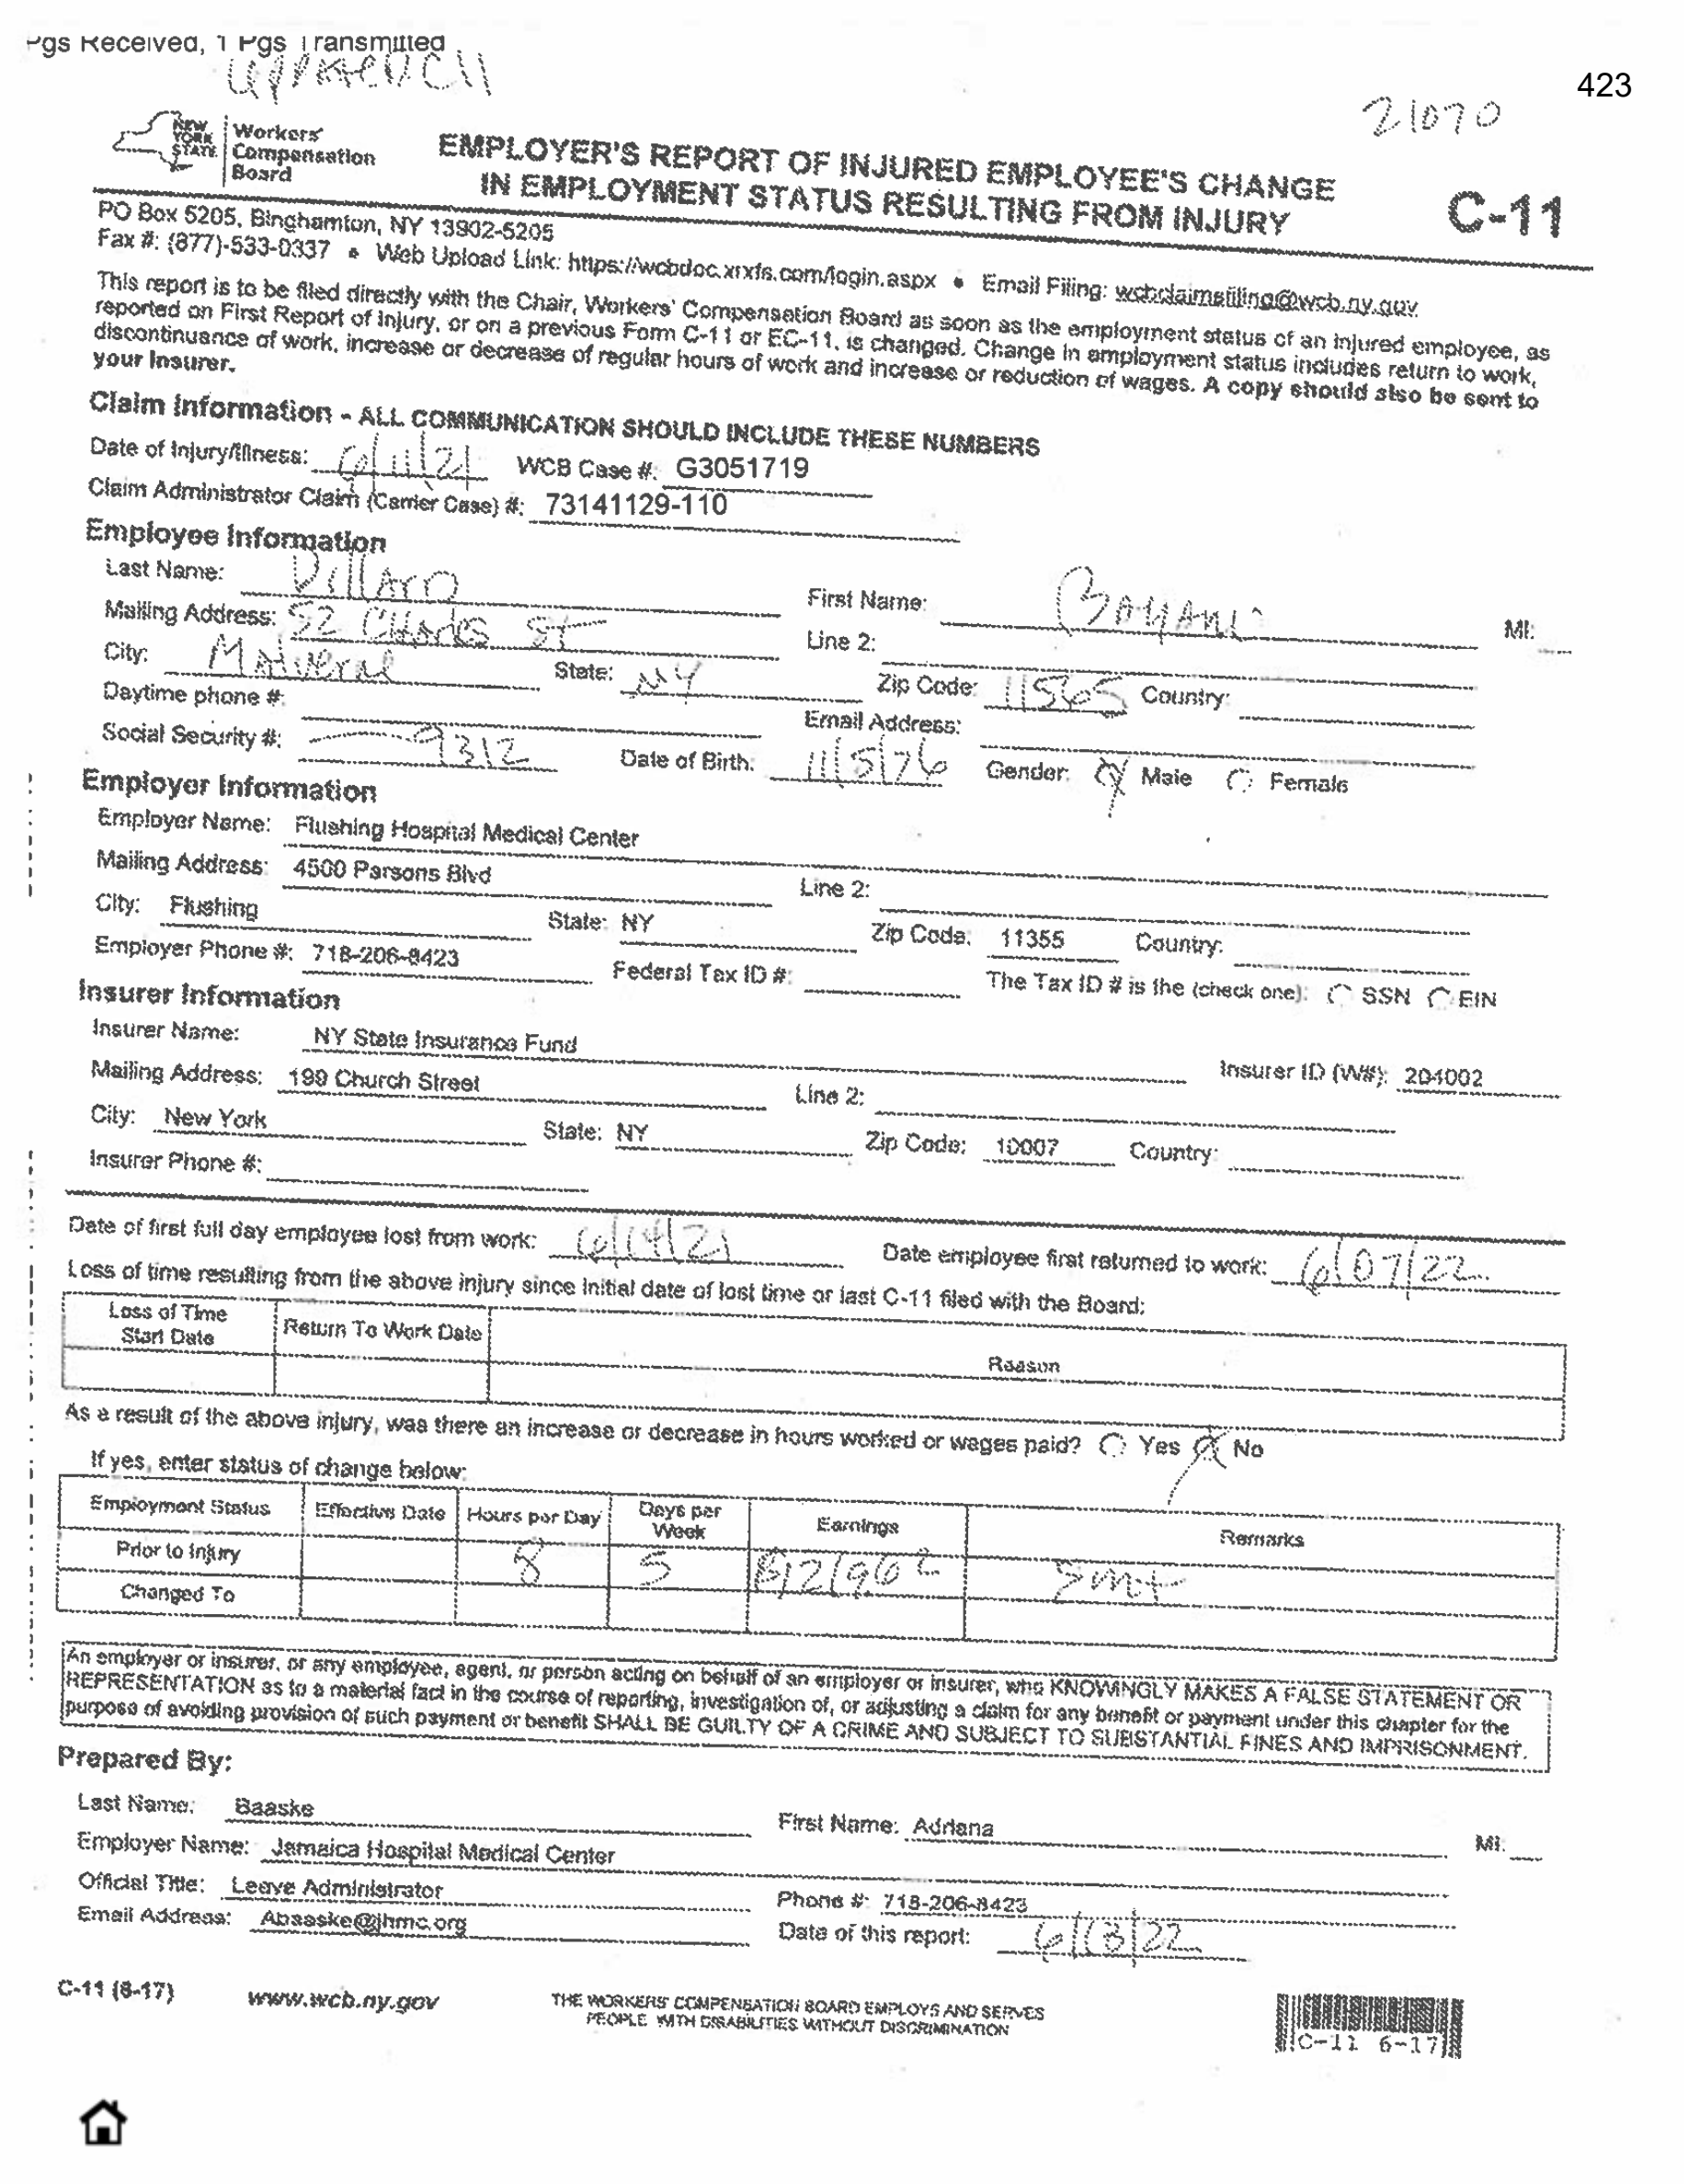 Pgs Received, 1 Pgs Transmitted
updated C11
423
21070
NEW YORK STATE
Workers' Compensation Board
EMPLOYER'S REPORT OF INJURED EMPLOYEE'S CHANGE
IN EMPLOYMENT STATUS RESULTING FROM INJURY
C-11
PO Box 5205, Binghamton, NY 13902-5205
Fax #: (877)-533-0337 • Web Upload Link: https://wcbdoc.xrxfs.com/login.aspx • Email Filing: wcbclaimsfiling@wcb.ny.gov
This report is to be filed directly with the Chair, Workers' Compensation Board as soon as the employment status of an injured employee, as
reported on First Report of Injury, or on a previous Form C-11 or EC-11, is changed. Change in employment status includes return to work,
discontinuance of work, increase or decrease of regular hours of work and increase or reduction of wages. A copy should also be sent to
your insurer.
Claim Information - ALL COMMUNICATION SHOULD INCLUDE THESE NUMBERS
Date of Injury/Illness: 6/11/21 WCB Case #: G3051719
Claim Administrator Claim (Carrier Case) #: 73141129-110
Employee Information
Last Name: Dillard First Name: MI:
Mailing Address: 52 Charles ST Line 2:
City: Malverne State: NY Zip Code: 11565 Country:
Daytime phone #: Email Address:
Social Security #: 9312 Date of Birth: 11/5/76 Gender: Male Female
Employer Information
Employer Name: Flushing Hospital Medical Center
Mailing Address: 4500 Parsons Blvd Line 2:
City: Flushing State: NY Zip Code: 11355 Country:
Employer Phone #: 718-206-8423 Federal Tax ID #: The Tax ID # is the (check one): SSN EIN
Insurer Information
Insurer Name: NY State Insurance Fund Insurer ID (W#): 204002
Mailing Address: 199 Church Street Line 2:
City: New York State: NY Zip Code: 10007 Country:
Insurer Phone #:
Date of first full day employee lost from work: 6/14/21 Date employee first returned to work: 6/07/22
Loss of time resulting from the above injury since initial date of lost time or last C-11 filed with the Board:
Loss of Time Start Date Return To Work Date Reason
As a result of the above injury, was there an increase or decrease in hours worked or wages paid? Yes No
If yes, enter status of change below:
Employment Status Effective Date Hours per Day Days per Week Earnings Remarks
Prior to Injury 8 5
Changed To
An employer or insurer, or any employee, agent, or person acting on behalf of an employer or insurer, who KNOWINGLY MAKES A FALSE STATEMENT OR
REPRESENTATION as to a material fact in the course of reporting, investigation of, or adjusting a claim for any benefit or payment under this chapter for the
purpose of avoiding provision of such payment or benefit SHALL BE GUILTY OF A CRIME AND SUBJECT TO SUBSTANTIAL FINES AND IMPRISONMENT.
Prepared By:
Last Name: Baaske First Name: Adriana MI:
Employer Name: Jamaica Hospital Medical Center
Official Title: Leave Administrator Phone #: 718-206-8423
Email Address: Abaaske@jhmc.org Date of this report: 6/13/22
C-11 (8-17) www.wcb.ny.gov
THE WORKERS' COMPENSATION BOARD EMPLOYS AND SERVES
PEOPLE WITH DISABILITIES WITHOUT DISCRIMINATION
C-11 6-17